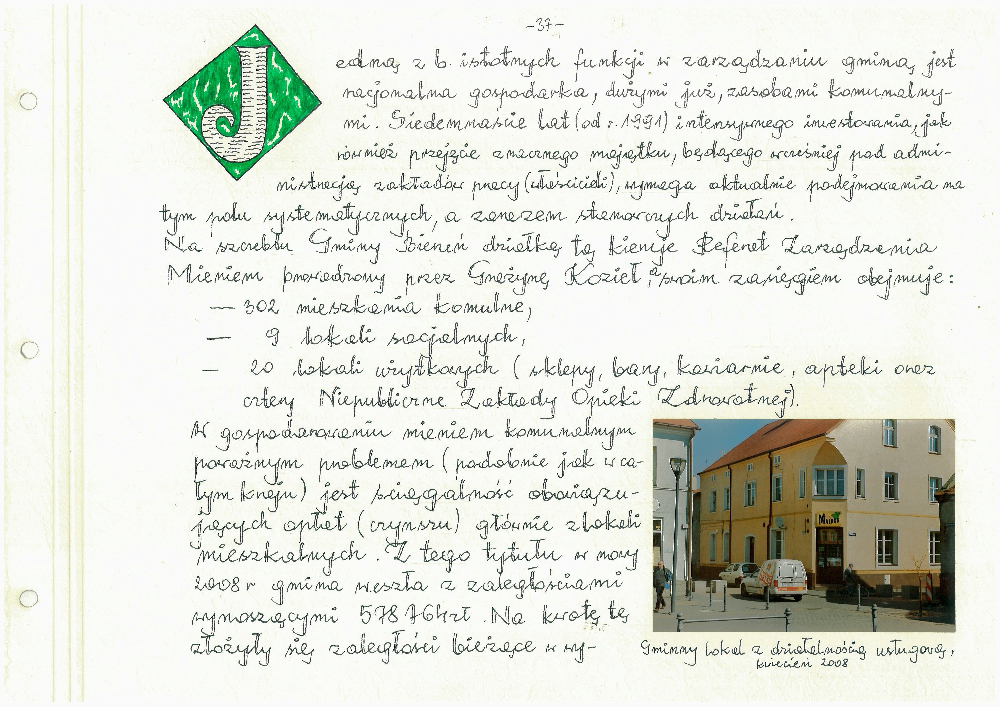 -37-
Jedną z b. istotnych funkcji w zarządzaniu gminą jest
racjonalna gospodarka, dużymi już, zasobami komunalny-
mi. Siedemnaście lat (od r. 1991) intensywnego inwestowania, jak
również przejęcie znacznego majątku, będącego wcześniej pod admi-
nistracją zakładów pracy (właścicieli), wymaga aktualnie podejmowania na
tym polu systematycznych, a zarazem stanowczych działań.
Na szczeblu Gminy Bieruń działkę tę kieruje Referat Zarządzania
Mieniem prowadzony przez Grażynę Kozieł, a swoim zasięgiem obejmuje:
— 302 mieszkania komulne,
— 9 lokali socjalnych,
— 20 lokali użytkowych (sklepy, bary, kawiarnie, apteki oraz
cztery Niepubliczne Zakłady Opieki Zdrowotnej).
W gospodarowaniu mieniem komunalnym
poważnym problemem (podobnie jak w ca-
łym kraju) jest ściągalność obowiązu-
jących opłat (czynszu) głównie z lokali
mieszkalnych. Z tego tytułu w nowy
2008 r gmina weszła z zaległościami
wynoszącymi 578 764 zł. Na kwotę tę
złożyły się zaległości bieżące w wy-
Gminny lokal z działalnością usługową,
kwiecień 2008